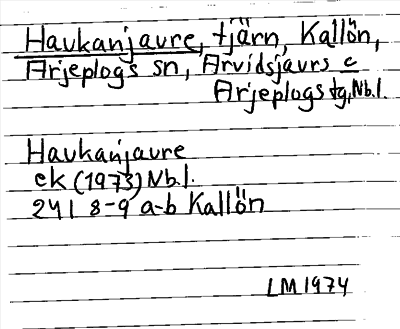 Haukanjaure, tjärn, Kallön,
Arjeplogs sn, Arvidsjaurs o
Arjeplogs tg, Nb.l.
Haukanjaure
ek (1973) Nb.l.
24I 8-9 a-b Kallön
LM 1974